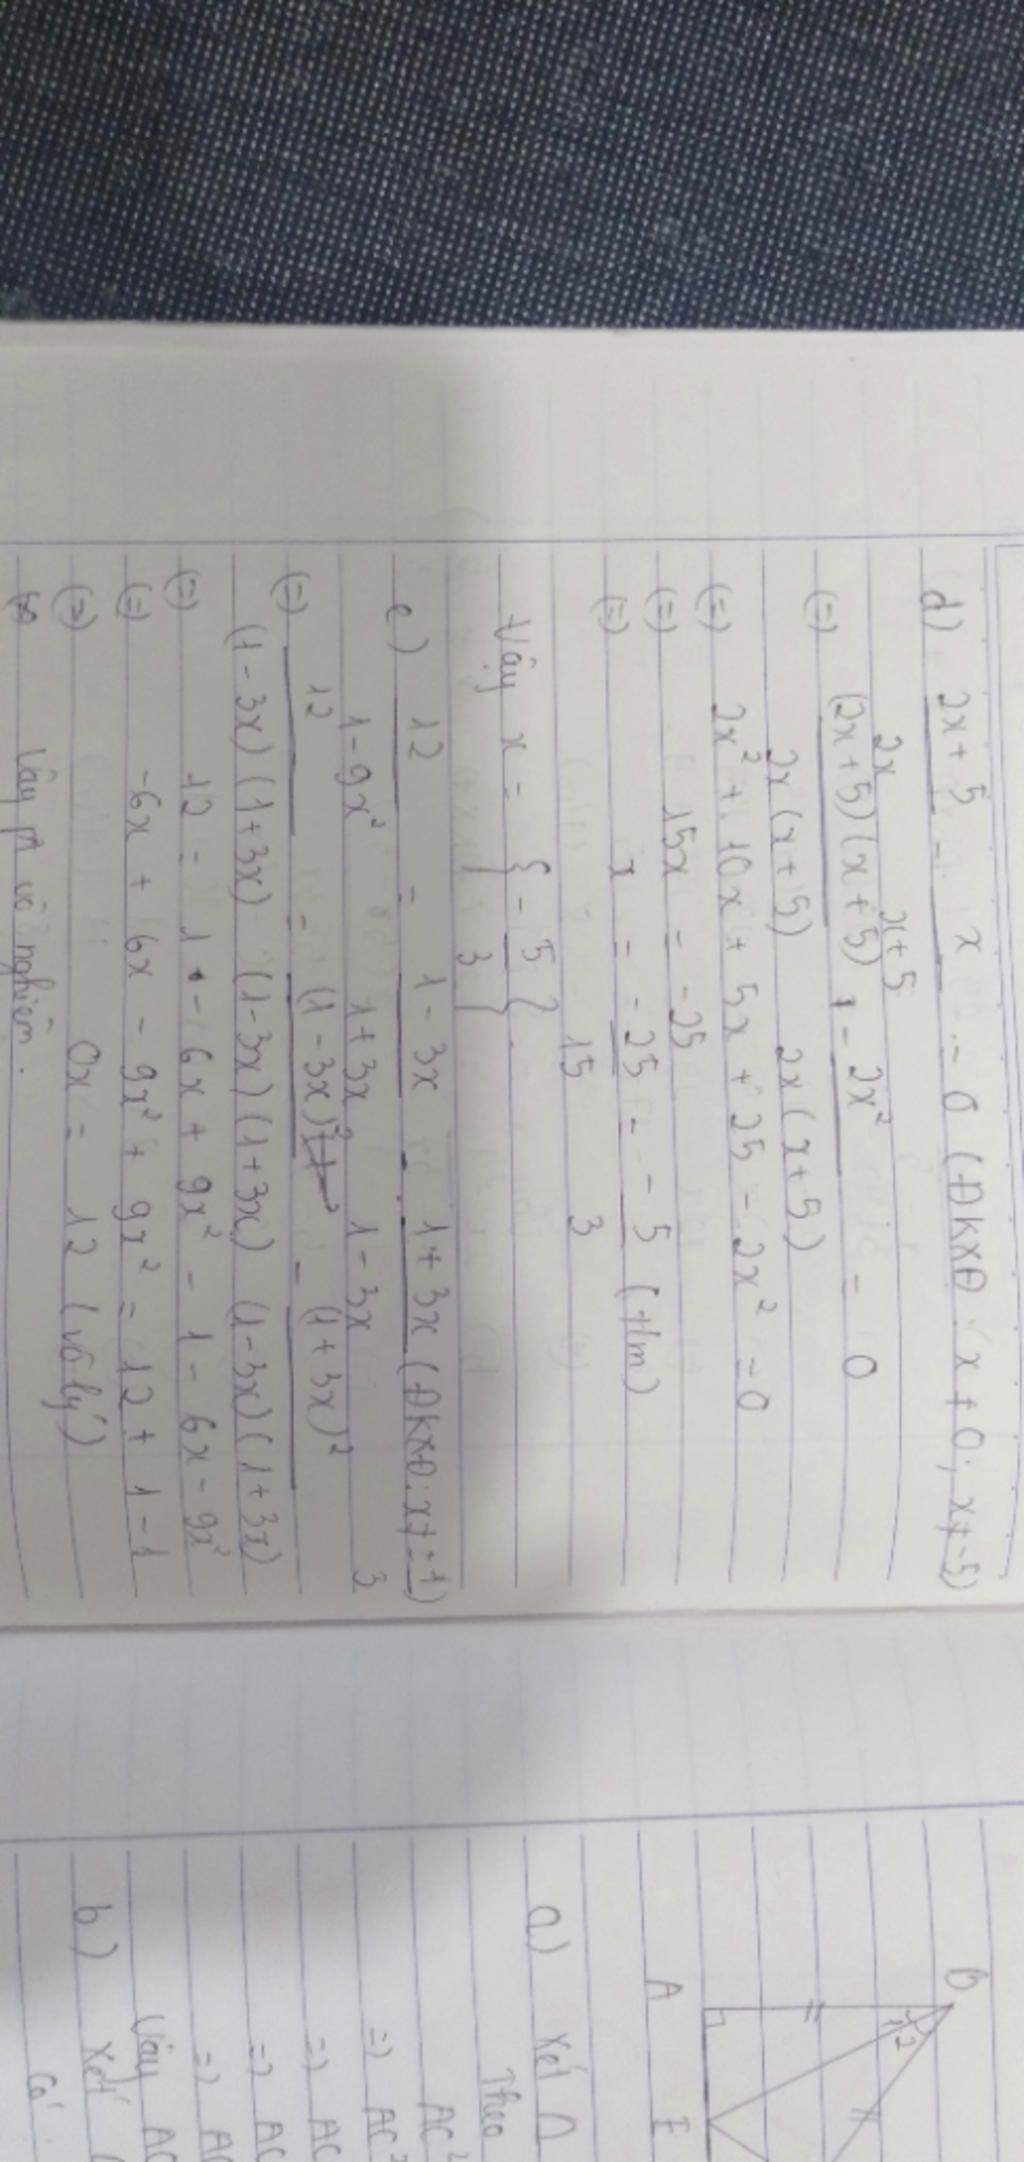 d) 2x + 5 / 2x - x / x+5 = 0 (ĐKXĐ: x ≠ 0; x ≠ -5)
(=) (2x+5)(x+5) / 2x(x+5) - 2x² / 2x(x+5) = 0
(=) 2x² + 10x + 5x + 25 - 2x² = 0
(=) 15x = -25
(=) x = -25 / 15 = -5 / 3 (t/m)
Vậy x = { -5 / 3 }.
e) 12 / 1-9x² = 1-3x / 1+3x - 1+3x / 1-3x (ĐKXĐ: x ≠ ±1 / 3)
(=) 12 / (1-3x)(1+3x) = (1-3x)² / (1-3x)(1+3x) - (1+3x)² / (1-3x)(1+3x)
(=) 12 = 1 - 6x + 9x² - 1 - 6x - 9x²
(=) -6x + 6x - 9x² + 9x² = 12 + 1 - 1
(=) 0x = 12 (vô lý)
Vậy pt vô nghiệm.
B
1 2
A E
a) Xét Δ
Theo
AC²
=) AC²
=) AC
=) AC
=) AC
Vậy AC
b) Xét
Có